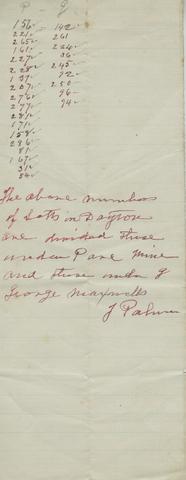 P - G
156 - 142
221 261
265 224
161 36
227 245
228 92
139 250
207 96
276 94
277
282
171
158
286
81
167
31
54
The above numbers
of Lots in Dayton
are divided those
under P are mine
and those under G
George Maxwells
J Palmer